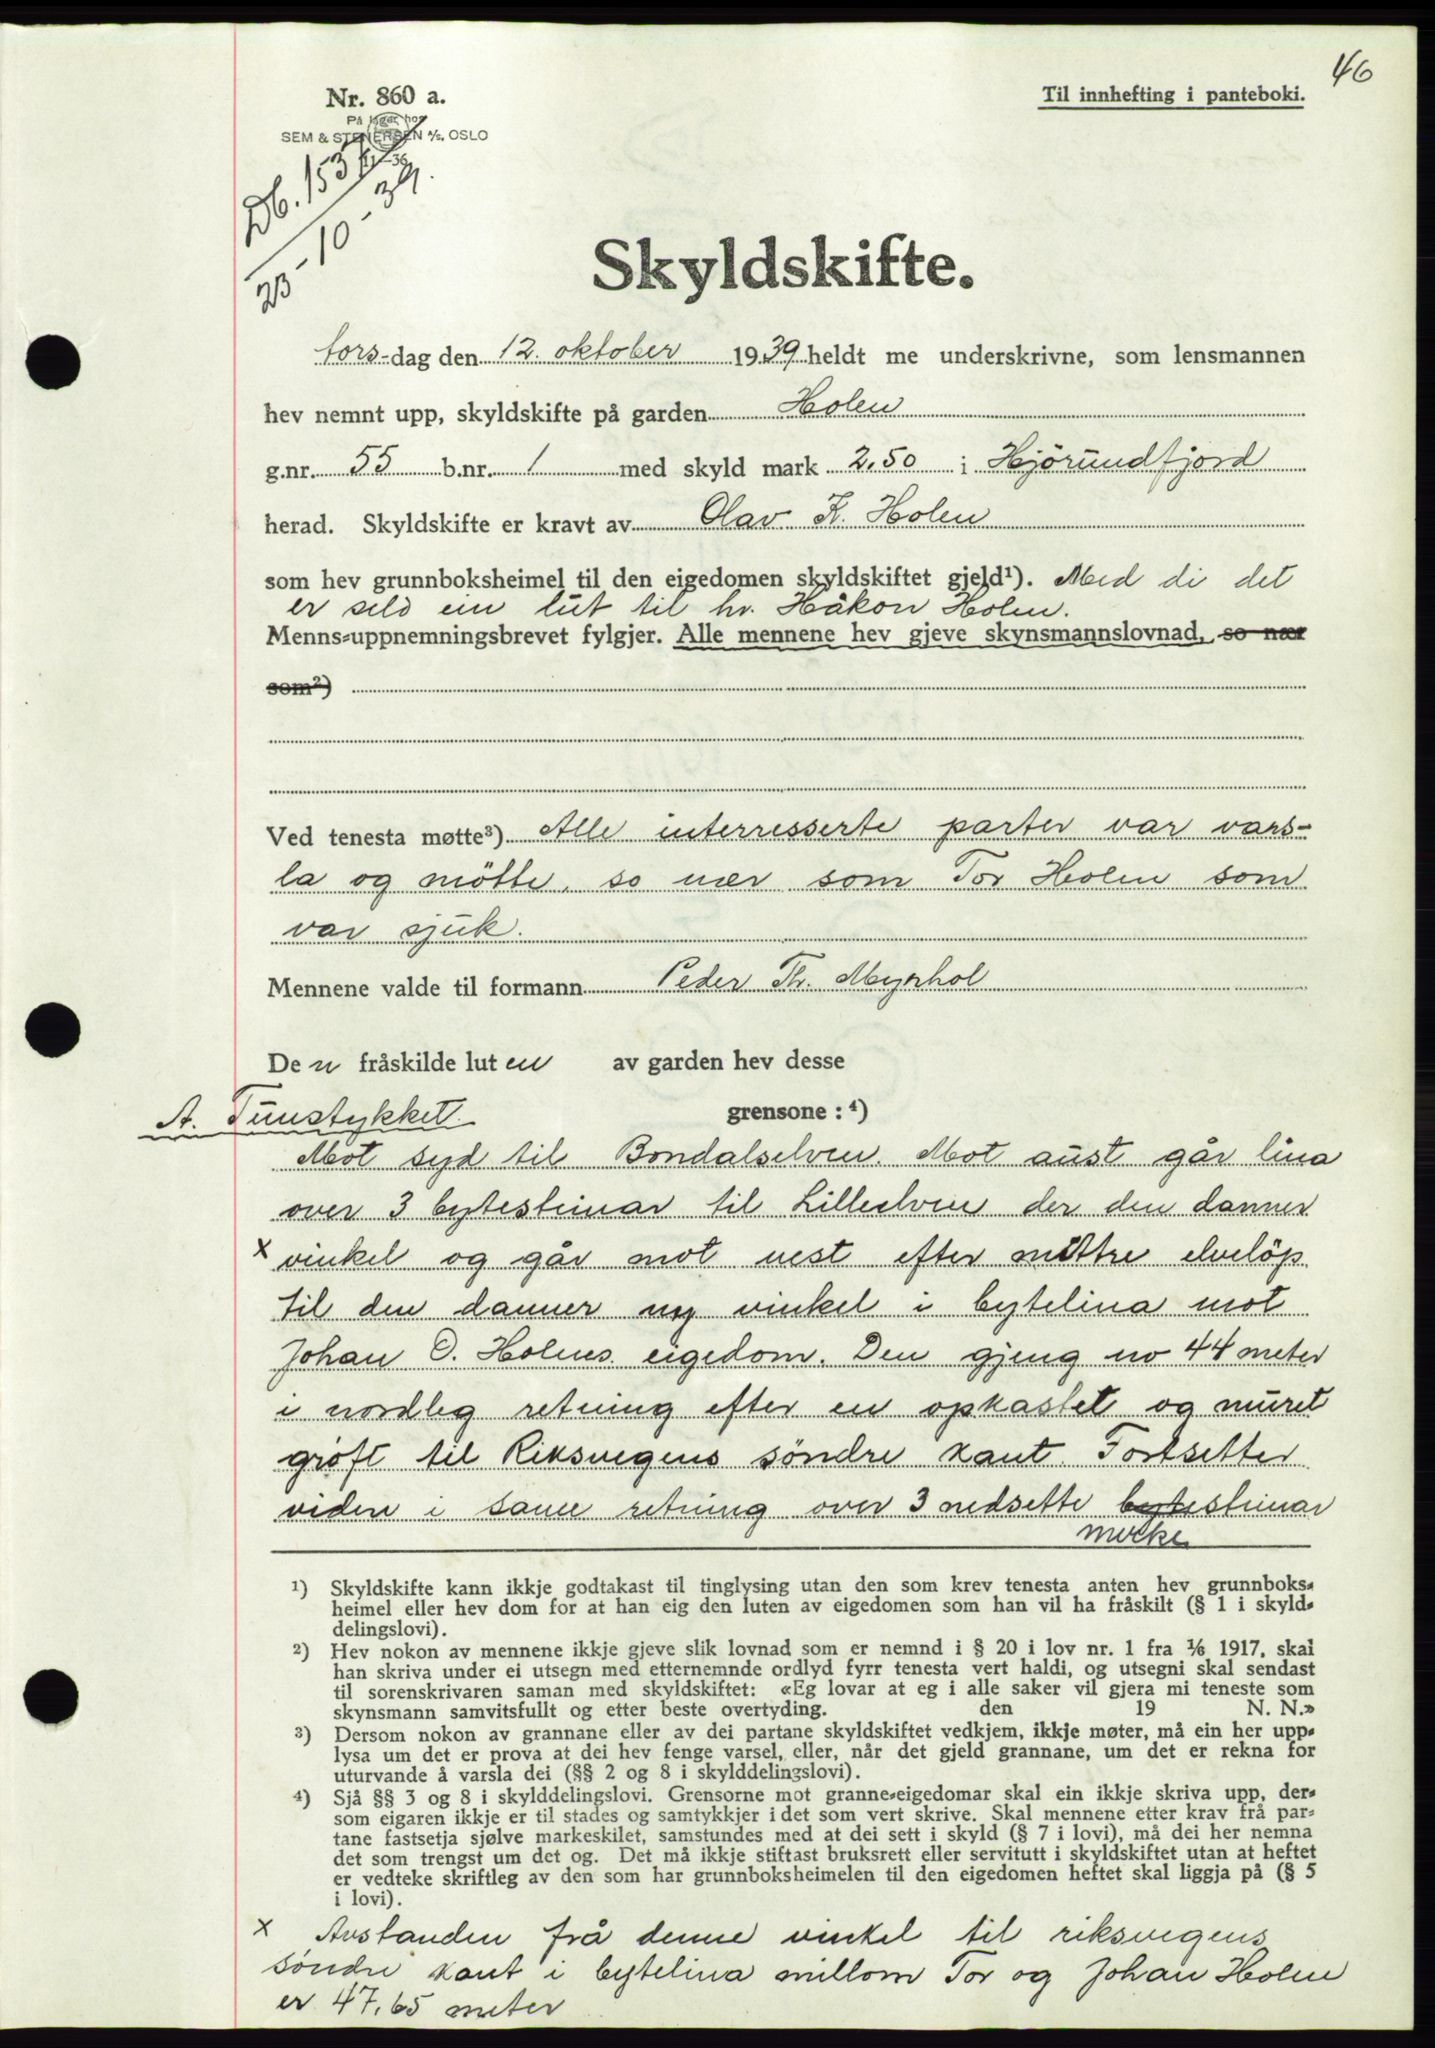 46
Nr. 860 a.
Til innhefting i panteboki.
På lager hos
SEM & STENERSEN A/S, OSLO
Db. 1537
23-10-39.
Skyldskifte.
tors-dag den 12. oktober 1939 heldt me underskrivne, som lensmannen
hev nemnt upp, skyldskifte på garden Holen
g.nr. 55 b.nr. 1 med skyld mark 2,50 i Hjörundfjord
herad. Skyldskifte er kravt av Olav K. Holen
som hev grunnboksheimel til den eigedomen skyldskiftet gjeld¹). Med di det
er seld ein lut til hr. Håkon Holen.
Menns-uppnemningsbrevet fylgjer. Alle mennene hev gjeve skynsmannslovnad, so nær
som²)
Ved tenesta møtte³) Alle interresserte parter var vars-
la og mötte, so nær som Tor Holen som
var sjuk.
Mennene valde til formann Peder Th. Myrhol
De n fråskilde lut en av garden hev desse
grensone : ⁴)
A. Tunstykket.
Mot syd til Bondalselven. Mot aust går lina
over 3 bytesteinar til Lilleelven der den danner
x vinkel og går mot vest efter mittre elvelöp
til den danner ny vinkel i bytelina mot
Johan O. Holens eigedom. Den gjeng no 44 meter
i nordleg retning efter en opkastet og muret
gröft til Riksvegens söndre kant. Fortsetter
videre i same retning over 3 nedsette bytesteinar
merke
¹) Skyldskifte kann ikkje godtakast til tinglysing utan den som krev tenesta anten hev grunnboks-
heimel eller hev dom for at han eig den luten av eigedomen som han vil ha fråskilt (§ 1 i skyld-
delingslovi).
²) Hev nokon av mennene ikkje gjeve slik lovnad som er nemnd i § 20 i lov nr. 1 fra ⅙ 1917, skal
han skriva under ei utsegn med etternemnde ordlyd fyrr tenesta vert haldi, og utsegni skal sendast
til sorenskrivaren saman med skyldskiftet: «Eg lovar at eg i alle saker vil gjera mi teneste som
skynsmann samvitsfullt og etter beste overtyding. den 19 N. N.»
³) Dersom nokon av grannane eller av dei partane skyldskiftet vedkjem, ikkje møter, må ein her upp-
lysa um det er prova at dei hev fenge varsel, eller, når det gjeld grannane, um det er rekna for
uturvande å varsla dei (§§ 2 og 8 i skylddelingslovi).
⁴) Sjå §§ 3 og 8 i skylddelingslovi. Grensorne mot granne-eigedomar skal ein ikkje skriva upp, der-
som eigaren ikkje er til stades og samtykkjer i det som vert skrive. Skal mennene etter krav frå par-
tane fastsetja sjølve markeskilet, samstundes med at dei sett i skyld (§ 7 i lovi), må dei her nemna
det som trengst um det og. Det må ikkje stiftast bruksrett eller servitutt i skyldskiftet utan at heftet
er vedteke skriftleg av den som har grunnboksheimelen til den eigedomen heftet skal liggja på (§ 5
i lovi).
x Avstanden frå denne vinkel til riksvegens
söndre kant i bytelina millom Tor og Johan Holen
er 47,65 meter